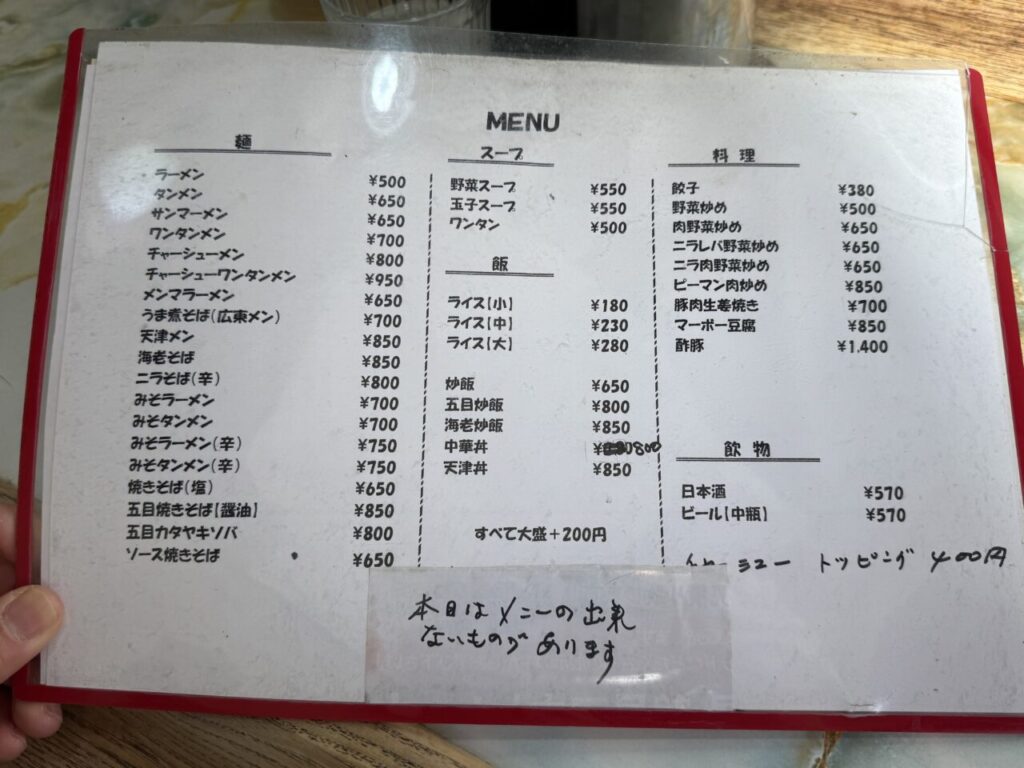 MENU
麺
ラーメン ¥500
タンメン ¥650
サンマーメン ¥650
ワンタンメン ¥700
チャーシューメン ¥800
チャーシューワンタンメン ¥950
メンマラーメン ¥650
うま煮そば(広東メン) ¥700
天津メン ¥850
海老そば ¥850
ニラそば(辛) ¥800
みそラーメン ¥700
みそタンメン ¥700
みそラーメン(辛) ¥750
みそタンメン(辛) ¥750
焼きそば(塩) ¥650
五目焼きそば【醤油】 ¥850
五目カタヤキソバ ¥800
ソース焼きそば ¥650
スープ
野菜スープ ¥550
玉子スープ ¥550
ワンタン ¥500
飯
ライス【小】 ¥180
ライス【中】 ¥230
ライス【大】 ¥280
炒飯 ¥650
五目炒飯 ¥800
海老炒飯 ¥850
中華丼 ¥800
天津丼 ¥850
すべて大盛+200円
料理
餃子 ¥380
野菜炒め ¥500
肉野菜炒め ¥650
ニラレバ野菜炒め ¥650
ニラ肉野菜炒め ¥650
ピーマン肉炒め ¥850
豚肉生姜焼き ¥700
マーボー豆腐 ¥850
酢豚 ¥1.400
飲物
日本酒 ¥570
ビール【中瓶】 ¥570
トッピング ¥00円
本日はメニーの出来
ないものがあります